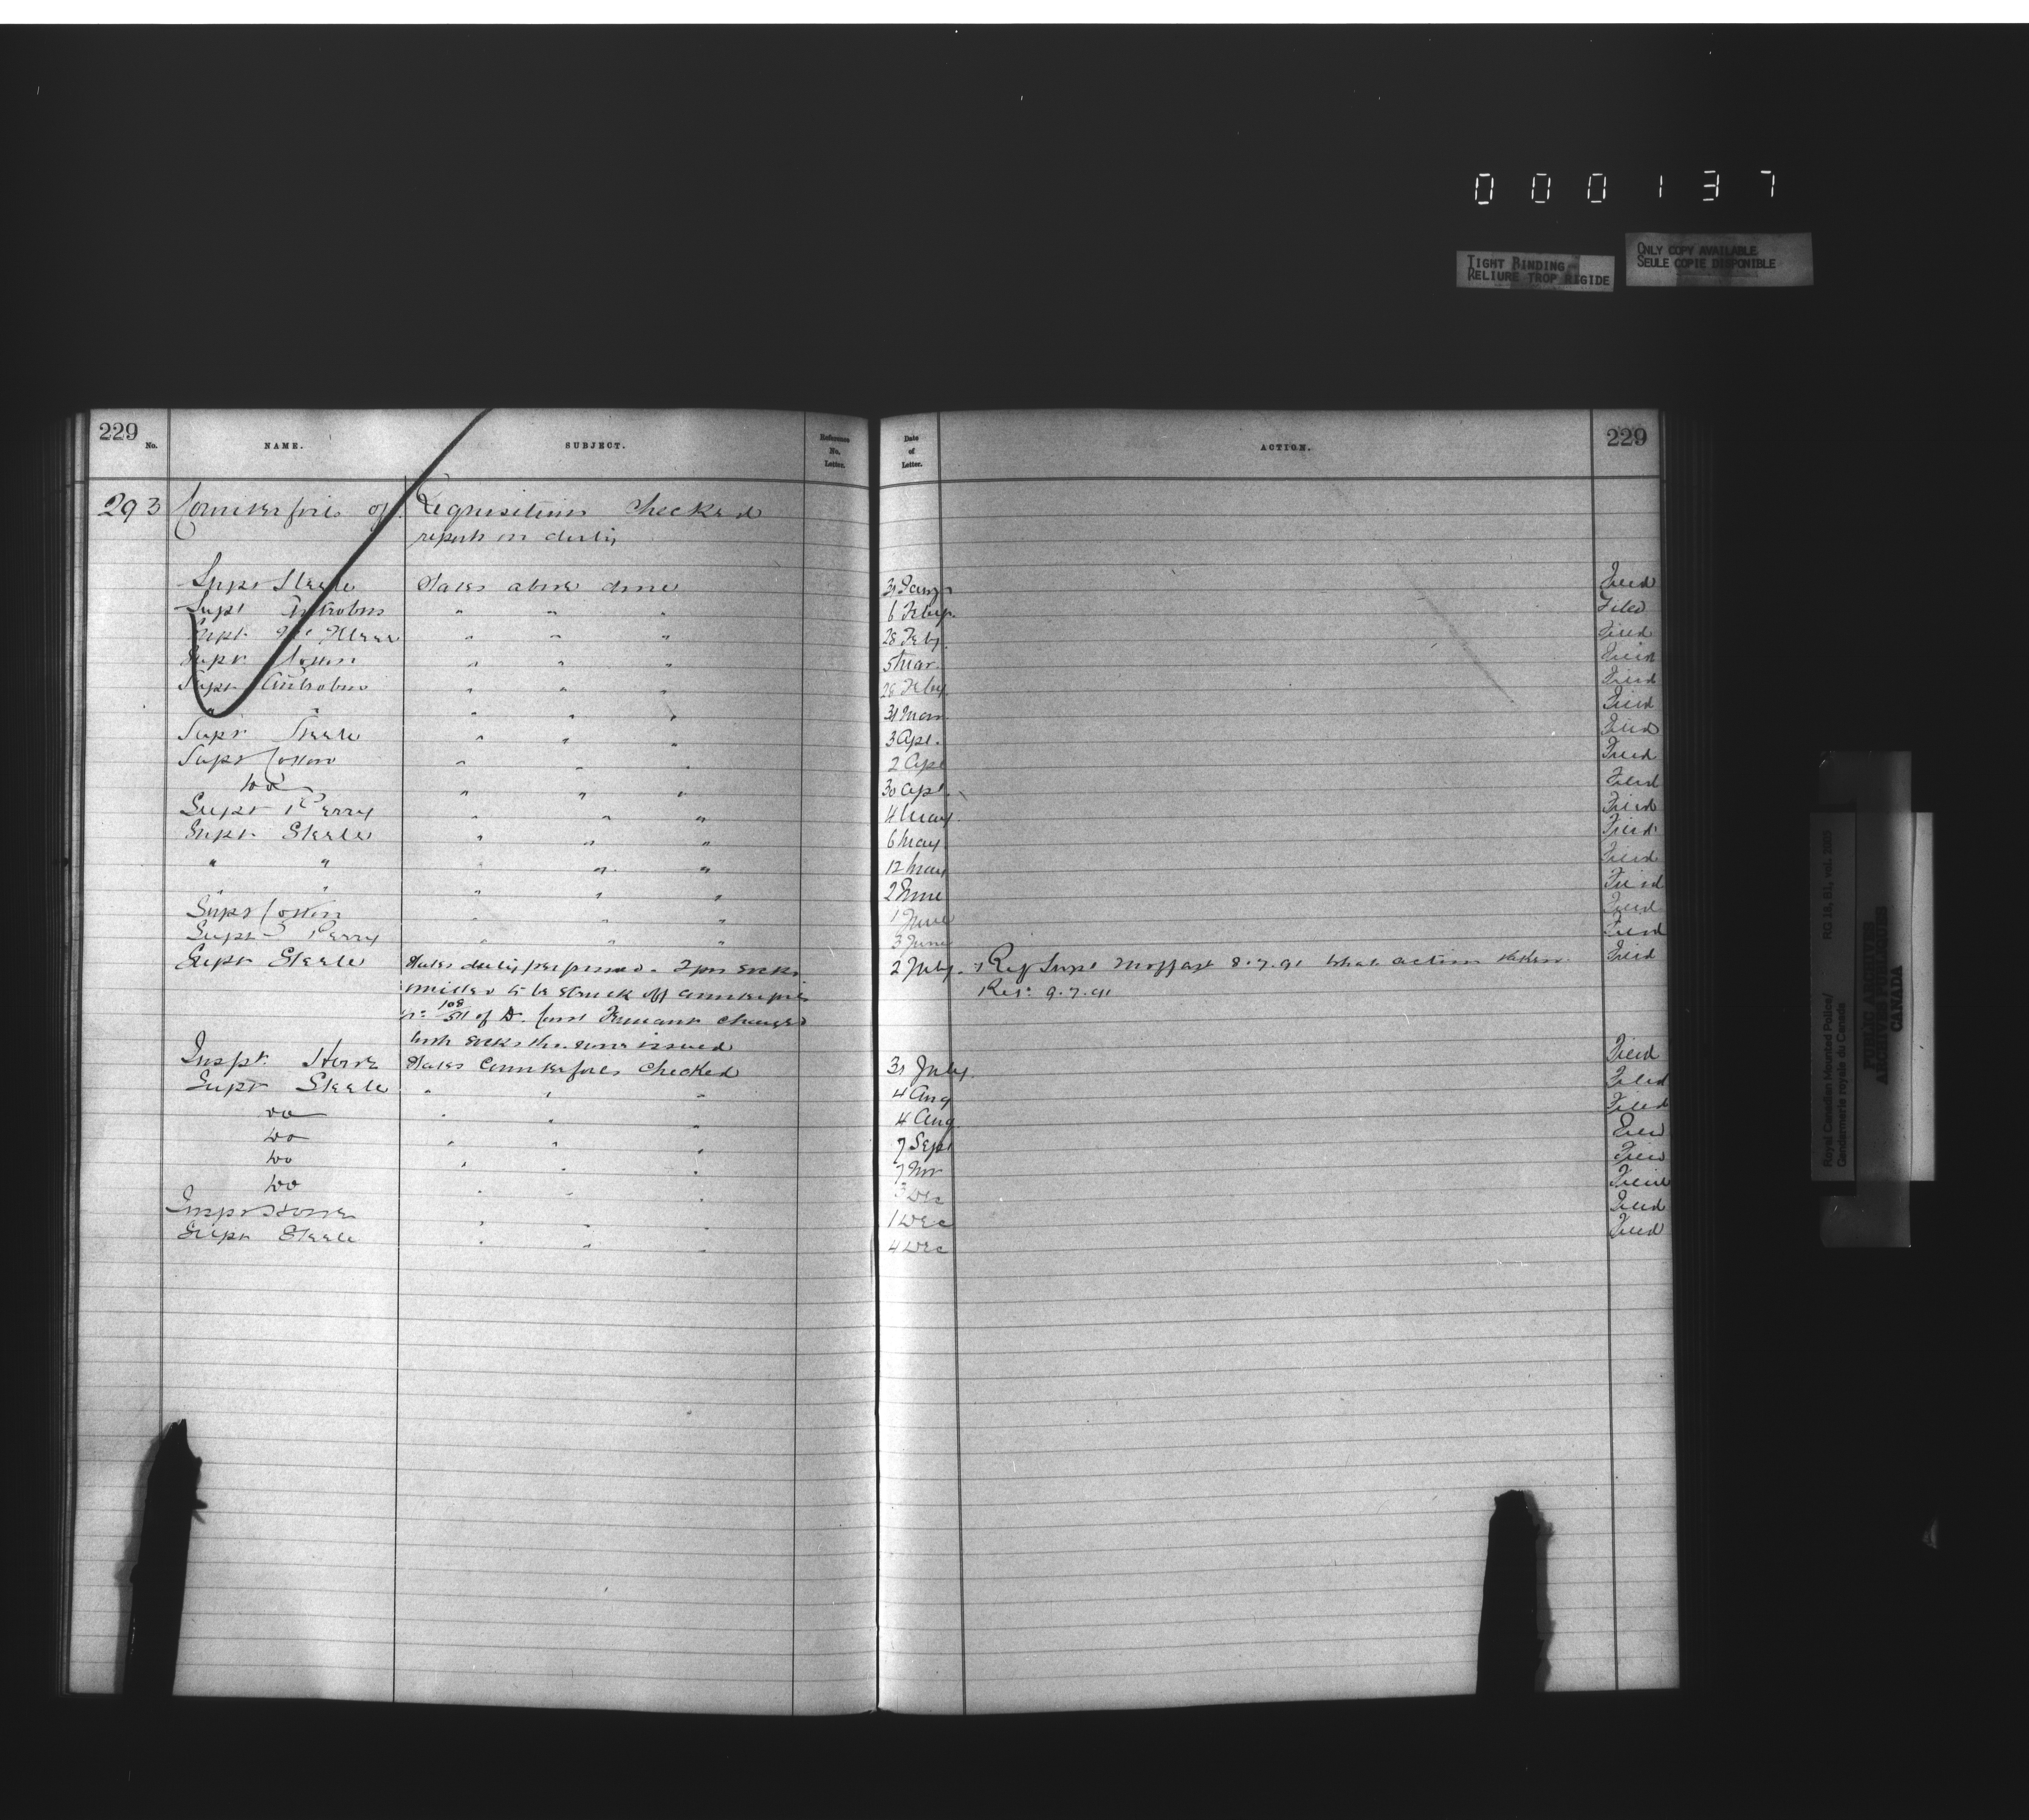 000137
TIGHT BINDING
RELIURE TROP RIGIDE
ONLY COPY AVAILABLE
SEULE COPIE DISPONIBLE
229 No. NAME. SUBJECT. Reference No. Letter. Date of Letter. ACTION. 229
293 Counterfoils of Requisitions checked
report on duty
Supt Steele States above done 31 Jany Filed
Supt Antrobus " " " 6 Feby. Filed
Supt " " " 28 Feby. Filed
Supt Cotton " " " 5 Mar. Filed
Supt Antrobus " " " 28 Feby. Filed
" " " " " 31 Mar Filed
Supt Steele " " " 3 Apl. Filed
Supt Cotton " " " 2 Apl Filed
Do " " " 30 Apl. Filed
Supt Perry " " " 4 May. Filed
Supt Steele " " " 6 May Filed
" " " " " 12 May Filed
" " " " 2 June Filed
Supt Cotton " " " 1 June Filed
Supt Perry " " " 3 June Filed
Supt Steele States duty performed. 2 pr socks 2 July. Ref Supt Moffat 8.7.91 what action taken. Filed
to be struck off counterfoil Ret: 9.7.91
No 108/511 of D. Const Tennant charged
with socks issued
Inspr Howe States Counterfoils checked 31 July. Filed
Supt Steele " " " 4 Aug Filed
Do " " " 4 Aug Filed
Do " " " 7 Sept Filed
Do " " " 7 Nov Filed
Do " " " 3 Dec Filed
Inspr Howe " " " 1 Dec Filed
Supt Steele " " " 4 Dec Filed
Royal Canadian Mounted Police/ RG 18, B1, vol.
Gendarmerie royale du Canada
PUBLIC ARCHIVES
ARCHIVES PUBLIQUES
CANADA